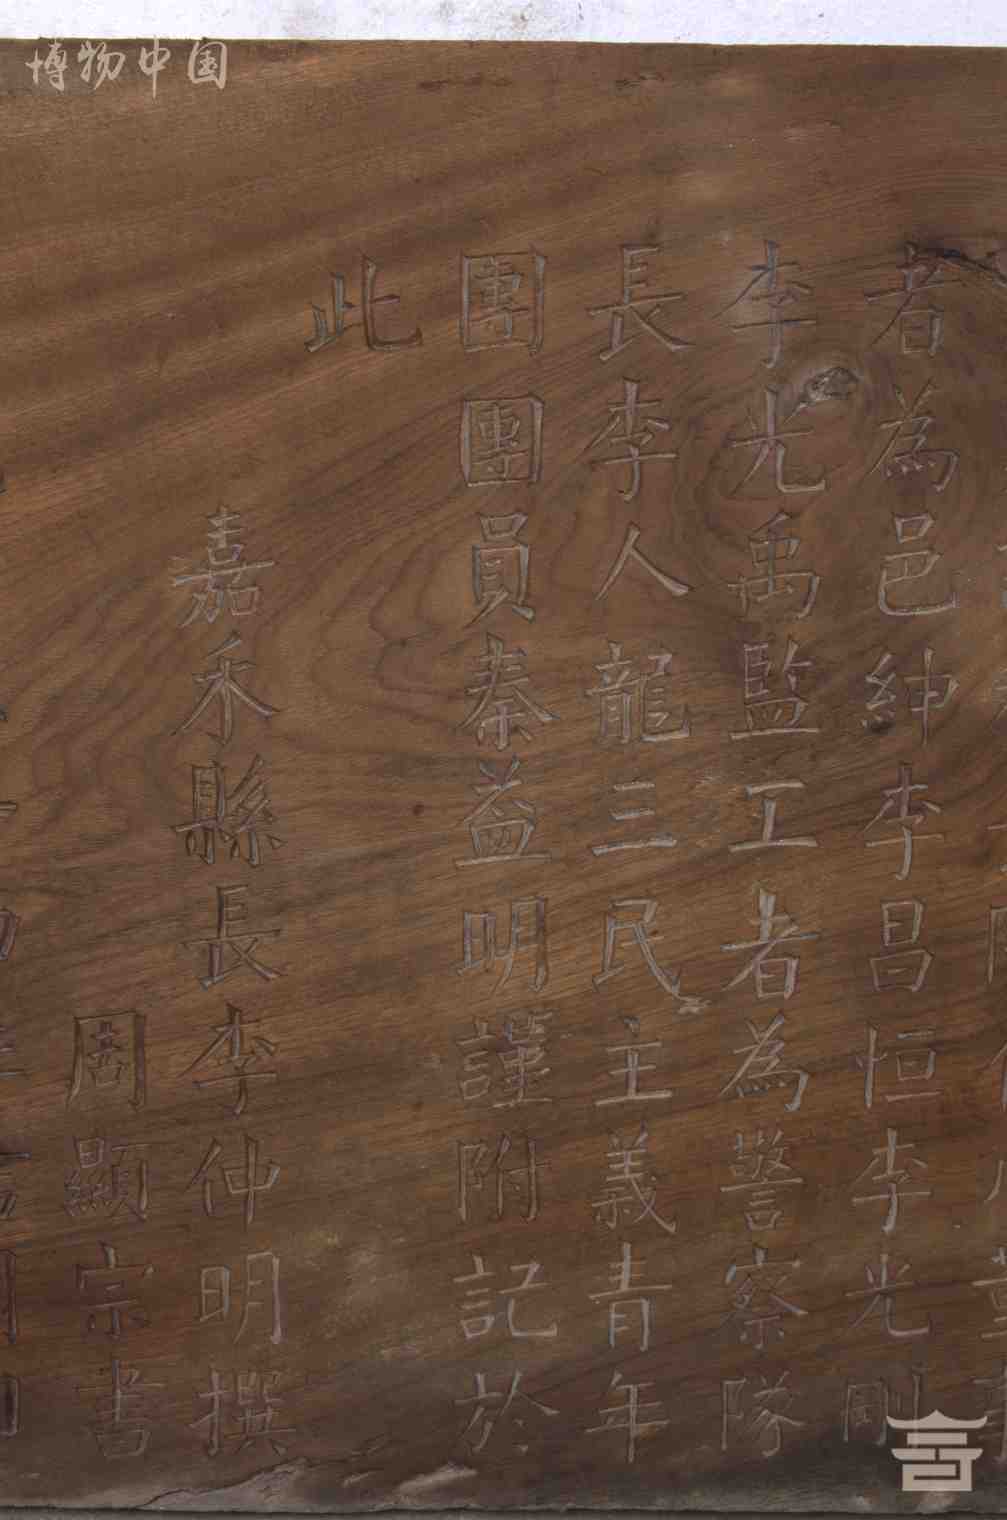 者為邑紳李昌恒李光剛
李光禹監工者為警察隊
長李人龍三民主義青年
團團員秦益明謹附記於
此
嘉禾縣長李仲明撰
周顯宗書
博物中国